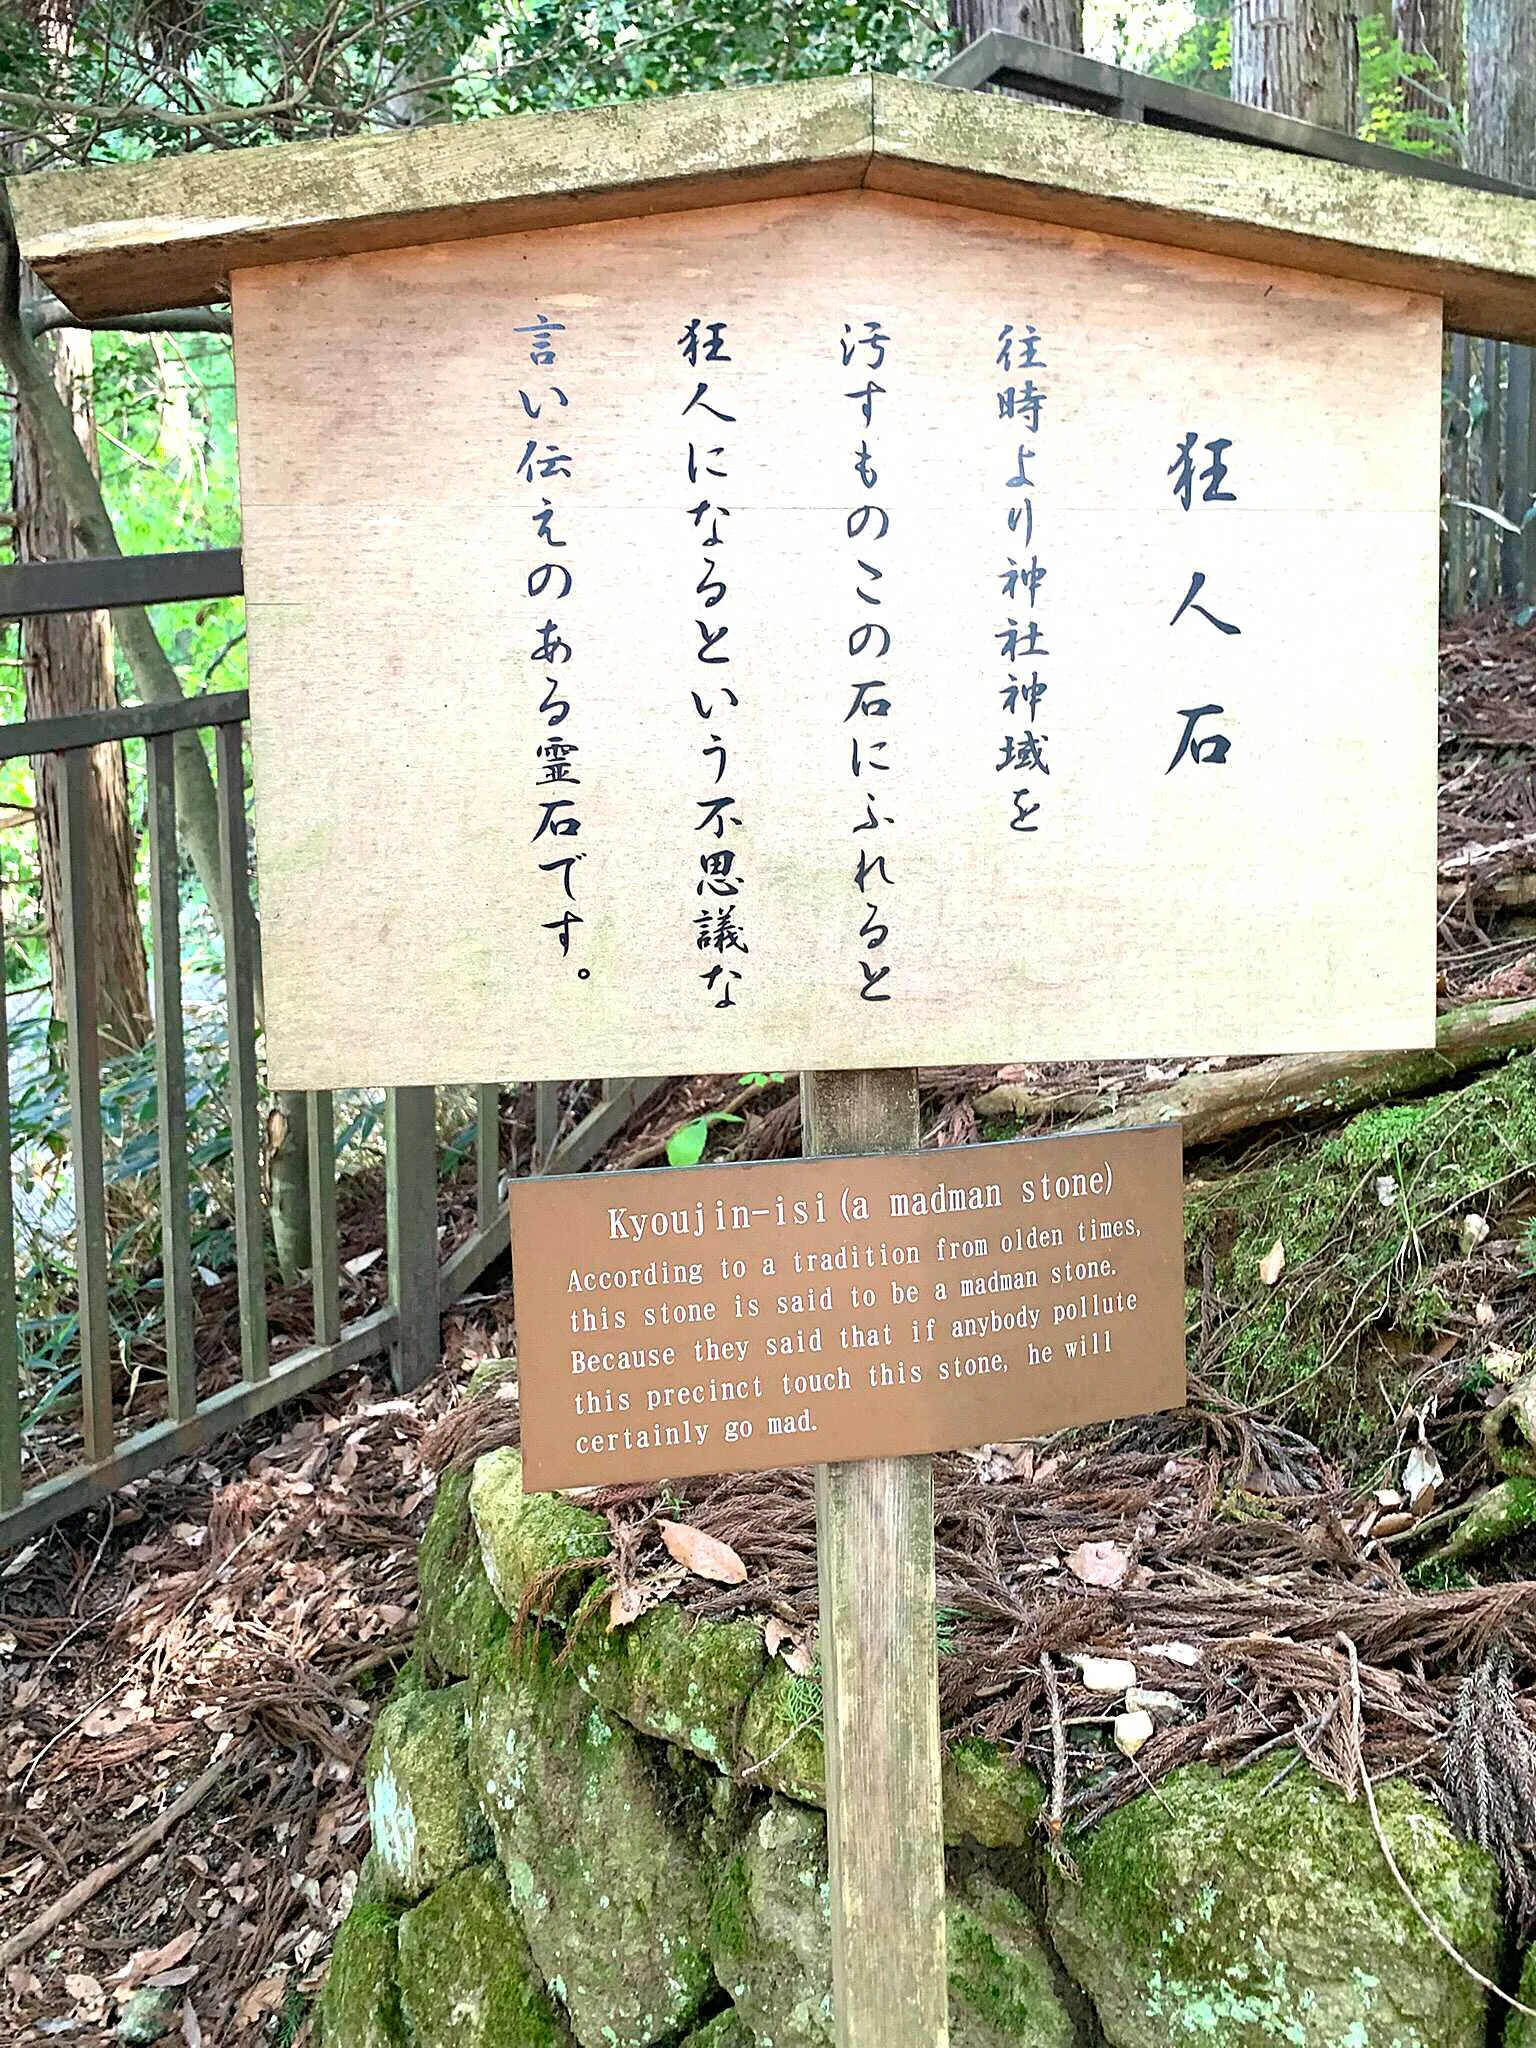 狂人石
往時より神社神域を
汚すものこの石にふれると
狂人になるという不思議な
言い伝えのある霊石です。
Kyoujin-isi(a madman stone)
According to a tradition from olden times,
this stone is said to be a madman stone.
Because they said that if anybody pollute
this precinct touch this stone, he will
certainly go mad.